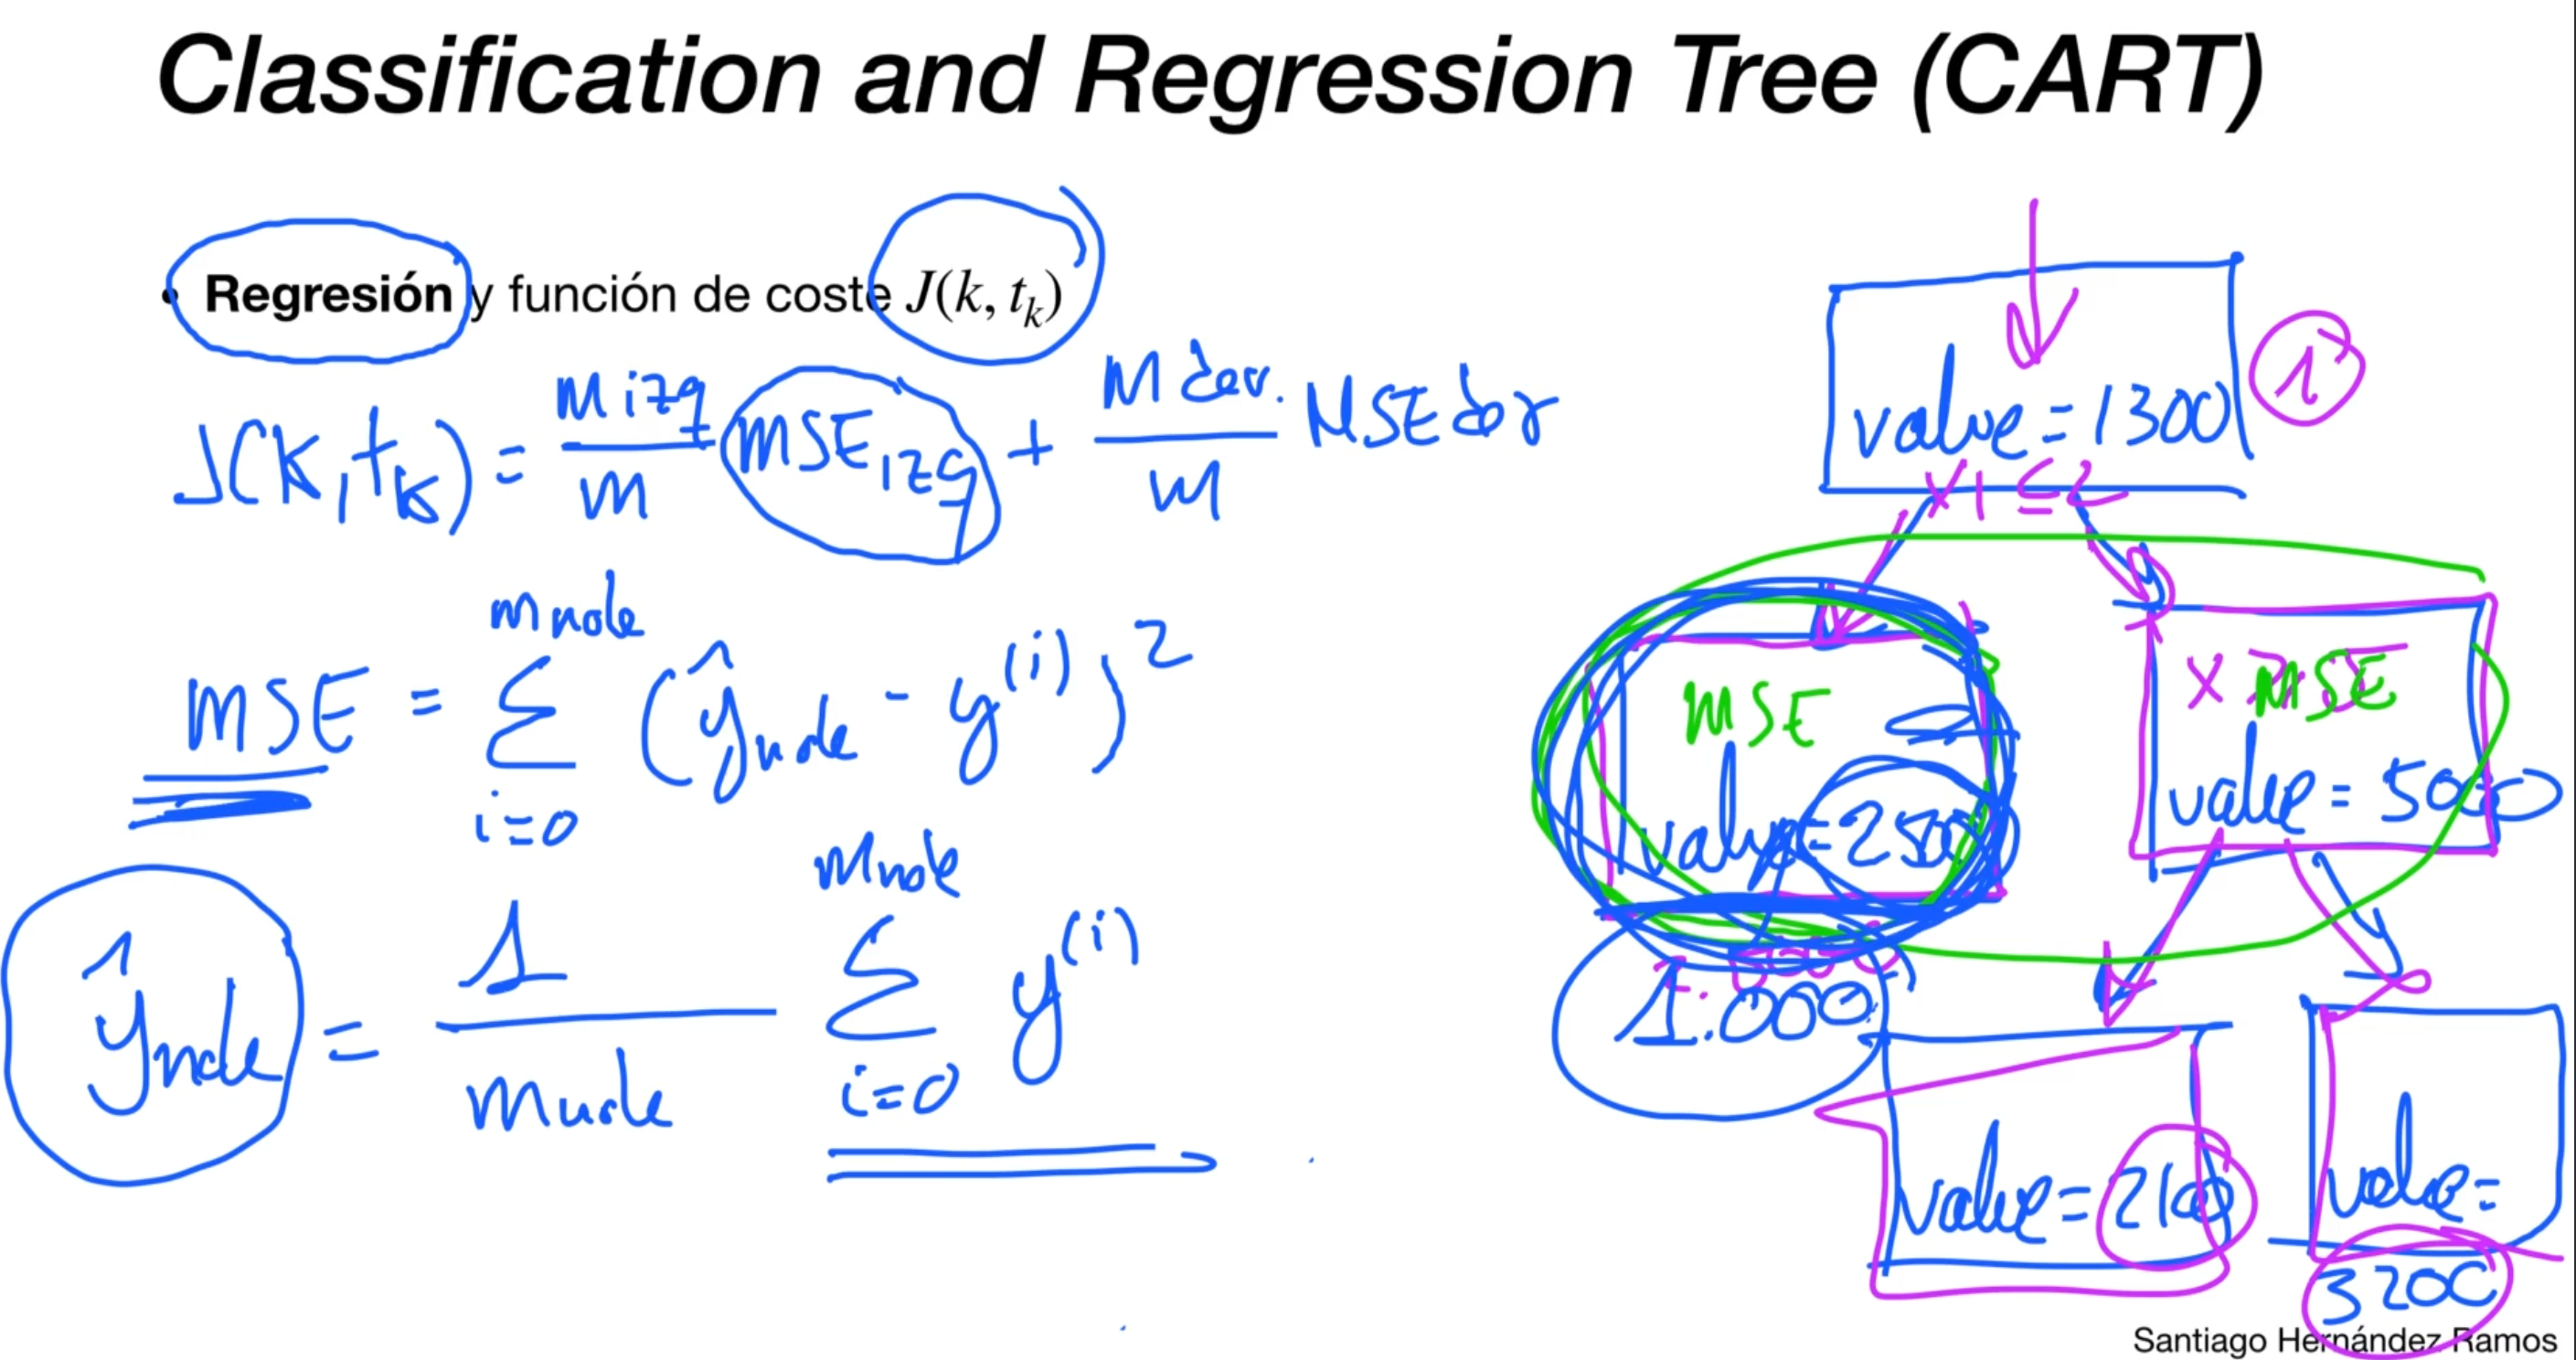 Classification and Regression Tree (CART)
• Regresión y función de coste J(k, t_k)
J(k, t_k) = m izq / m MSE izq + m der. / m MSE der
MSE = m node ∑ i=0 (ŷ node - y^(i))^2
ŷ node = 1 / m node m node ∑ i=0 y^(i)
value = 1300
i
x1 ≤ 2
MSE
value = 250
MSE
value = 5000
1.000
value = 2100
value =
3200
Santiago Hernández Ramos